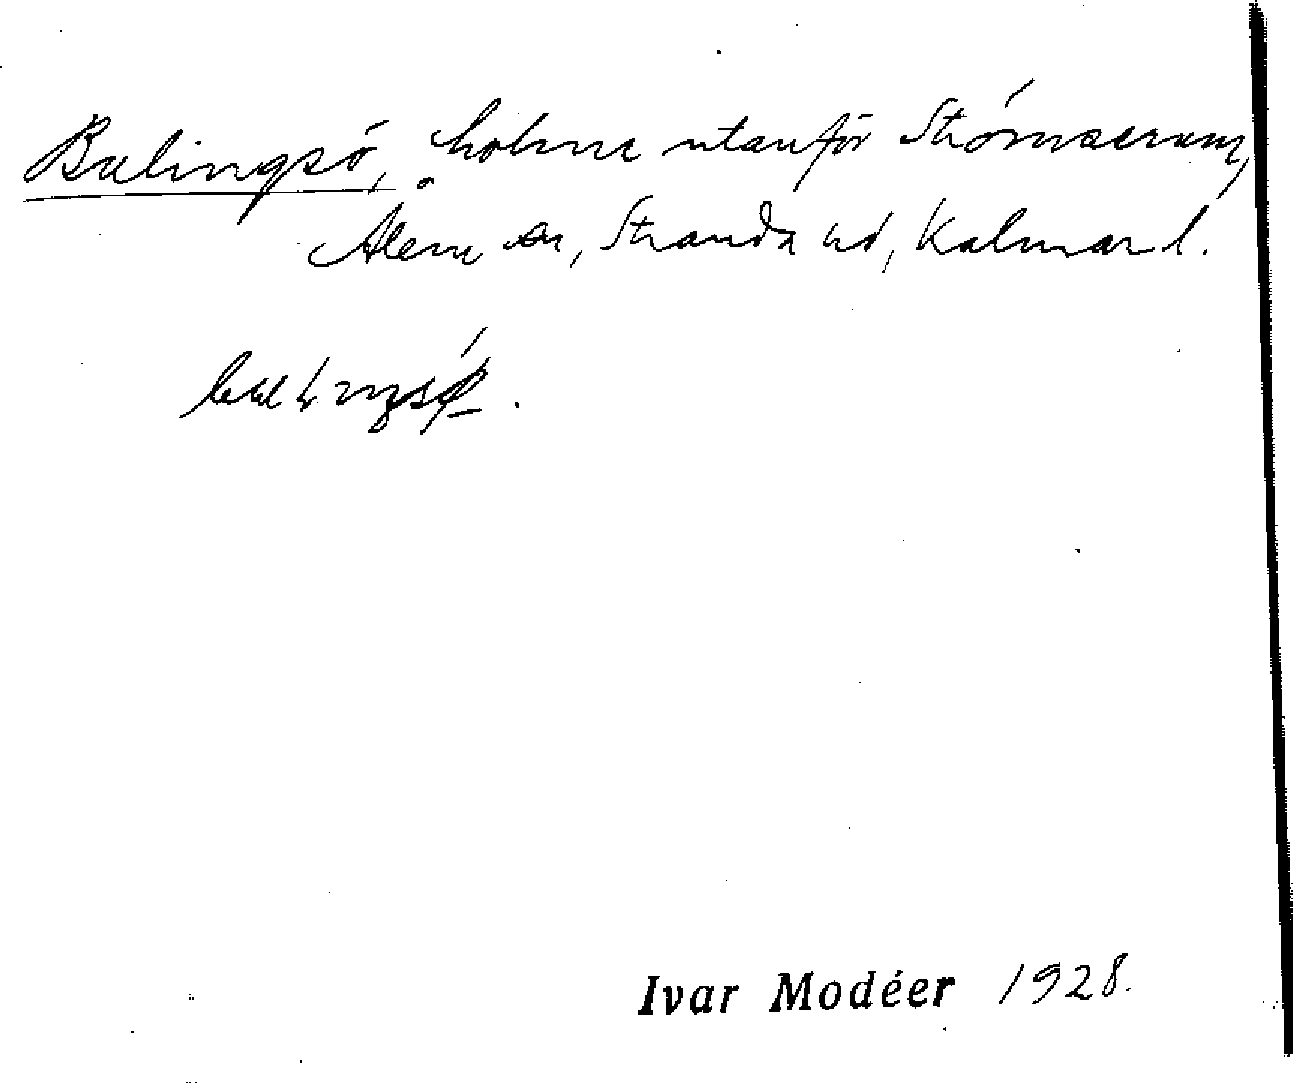 Balingsö, holme utanför Strömserum,
Ålem sn, Stranda hd, Kalmar l.
Ivar Modéer 1928.